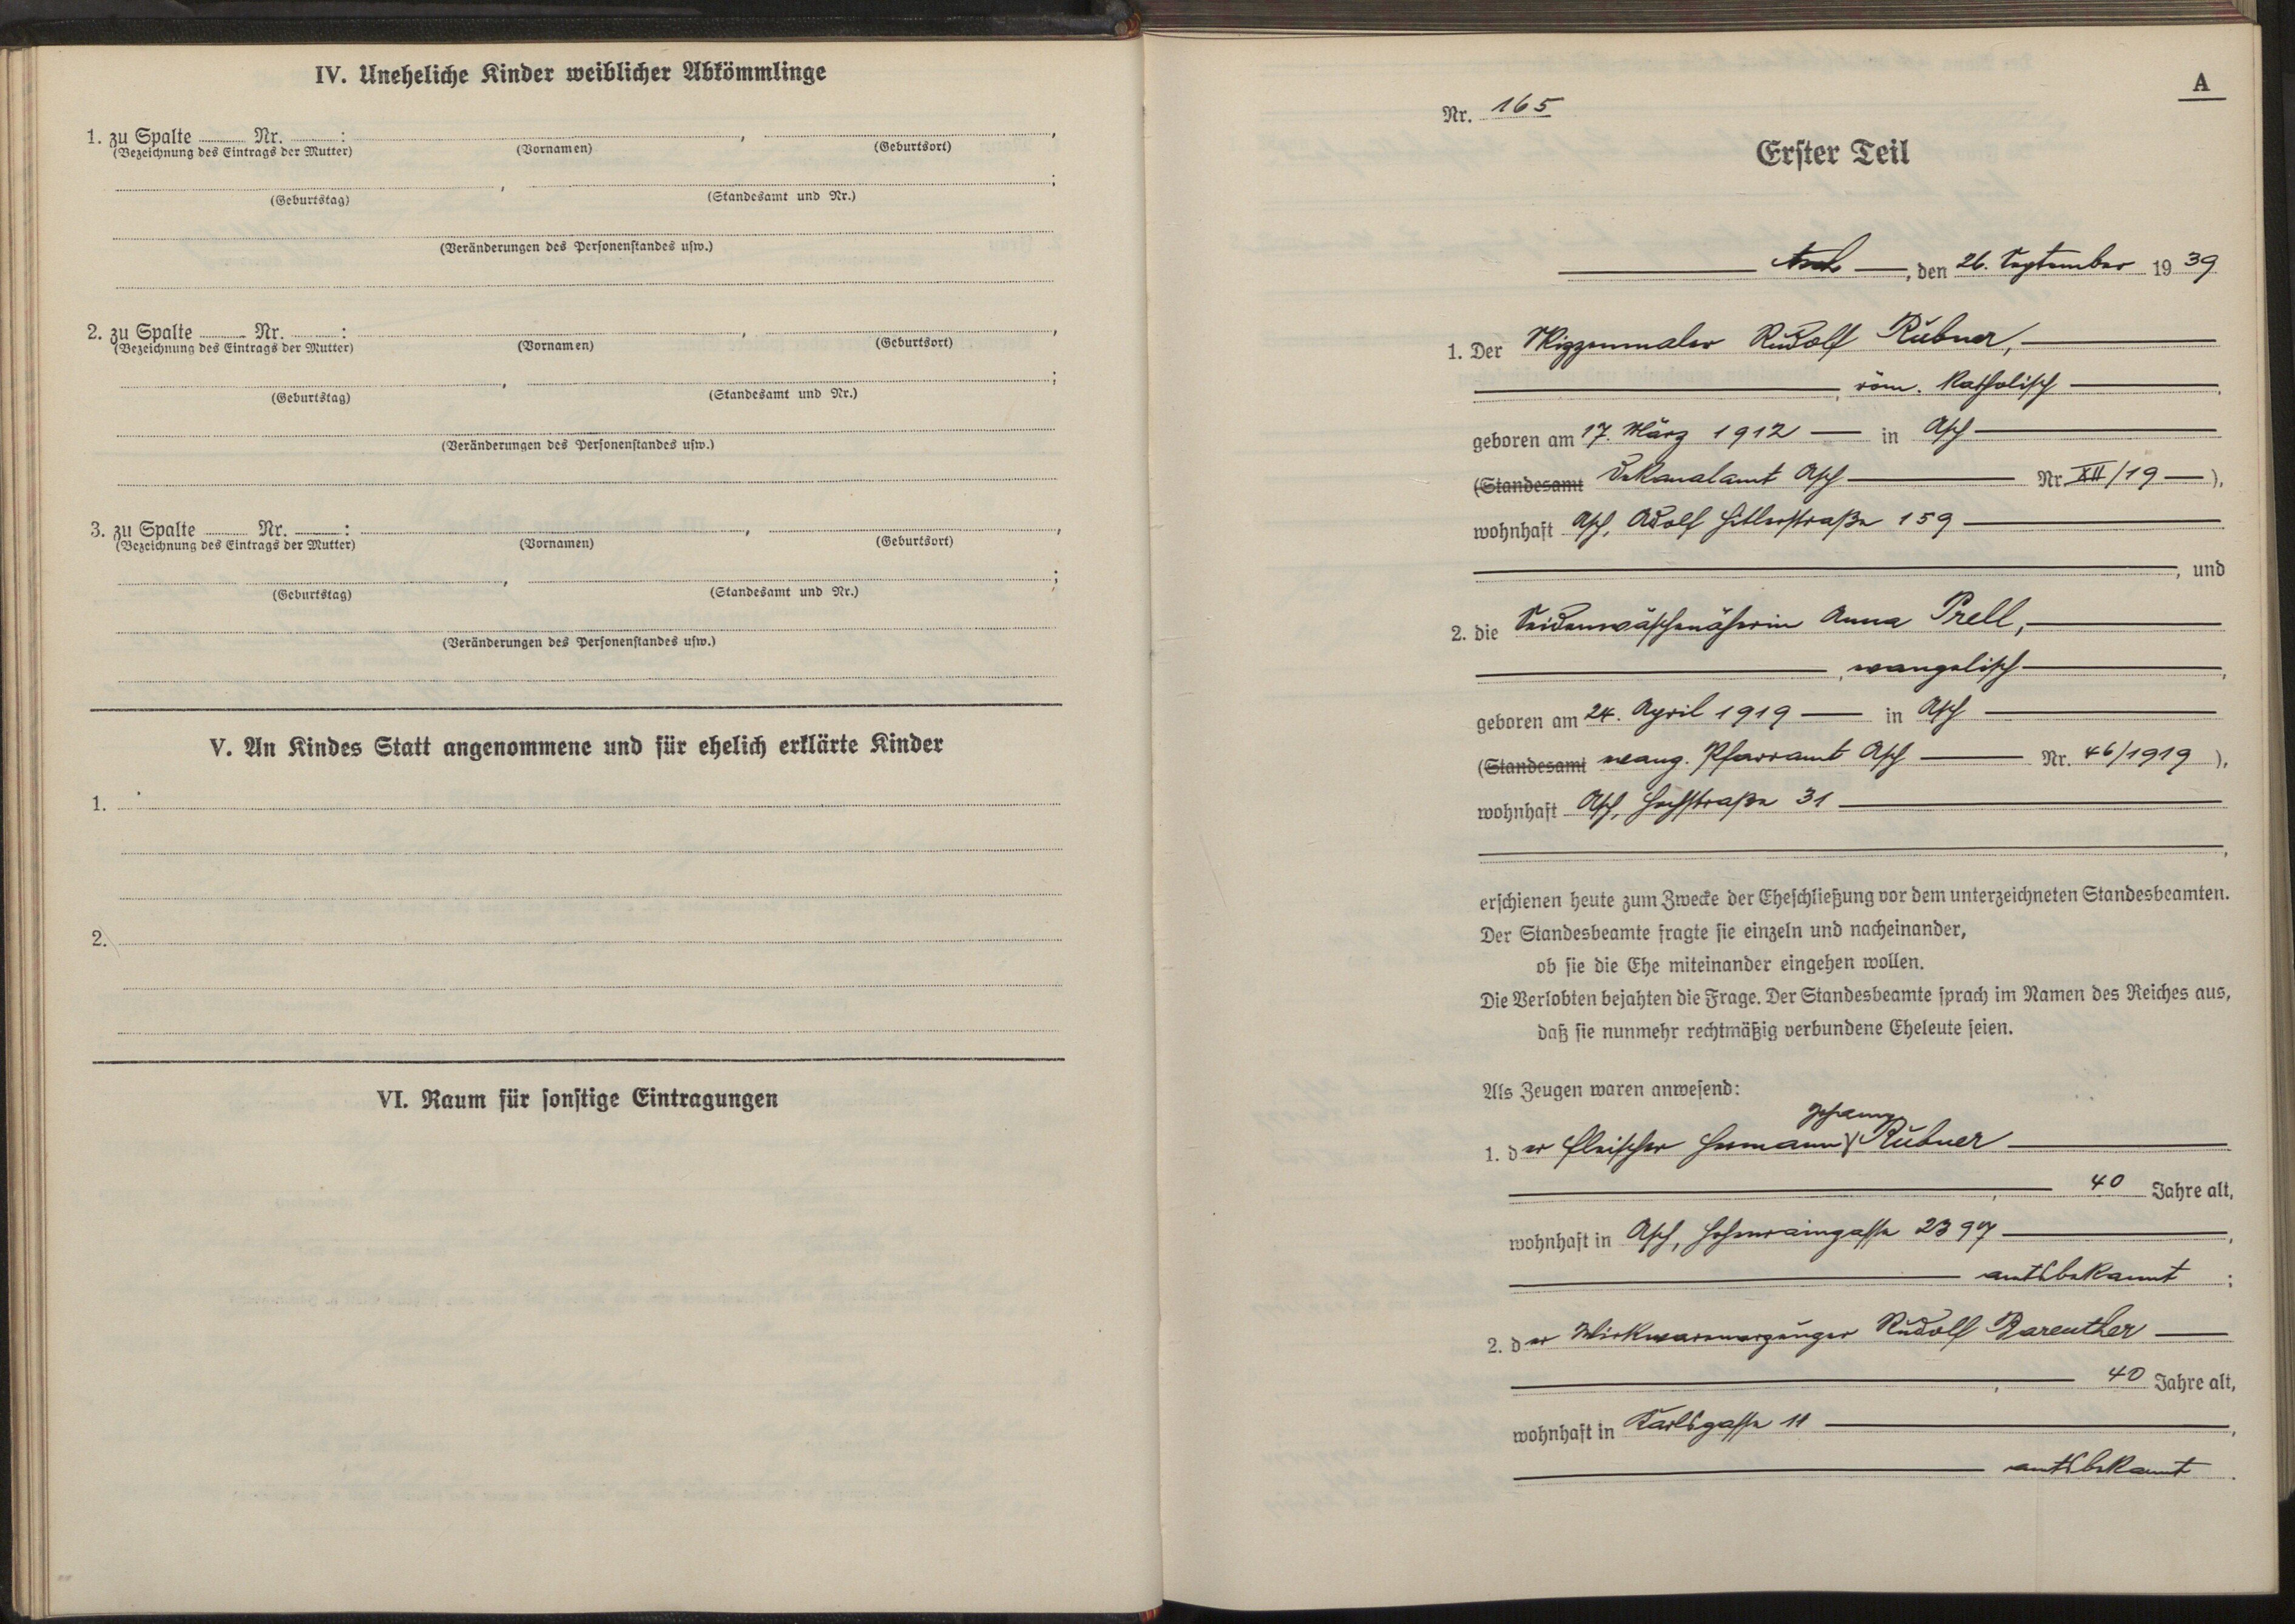 IV. Uneheliche Kinder weiblicher Abkömmlinge
1. zu Spalte ........ Nr. ........: ........, ........,
(Bezeichnung des Eintrags der Mutter) (Vornamen) (Geburtsort)
(Geburtstag) (Standesamt und Nr.)
(Veränderungen des Personenstandes usw.)
2. zu Spalte ........ Nr. ........: ........, ........,
(Bezeichnung des Eintrags der Mutter) (Vornamen) (Geburtsort)
(Geburtstag) (Standesamt und Nr.)
(Veränderungen des Personenstandes usw.)
3. zu Spalte ........ Nr. ........: ........, ........,
(Bezeichnung des Eintrags der Mutter) (Vornamen) (Geburtsort)
(Geburtstag) (Standesamt und Nr.)
(Veränderungen des Personenstandes usw.)
V. An Kindes Statt angenommene und für ehelich erklärte Kinder
1.
2.
VI. Raum für sonstige Eintragungen
A
Nr. 165
Erster Teil
Asch, den 26. September 1939
1. Der Skizzenmaler Rudolf Rubner,
, röm. katholisch,
geboren am 17. März 1912 in Asch
(Standesamt Dekanalamt Asch Nr. XII/19),
wohnhaft Asch, Adolf Hitlerstraße 159
, und
2. die Seidenwäschenäherin Anna Prell,
, evangelisch,
geboren am 24. April 1919 in Asch
(Standesamt evang. Pfarramt Asch Nr. 46/1919),
wohnhaft Asch, Hochstraße 31
,
erschienen heute zum Zwecke der Eheschließung vor dem unterzeichneten Standesbeamten.
Der Standesbeamte fragte sie einzeln und nacheinander,
ob sie die Ehe miteinander eingehen wollen.
Die Verlobten bejahten die Frage. Der Standesbeamte sprach im Namen des Reiches aus,
daß sie nunmehr rechtmäßig verbundene Eheleute seien.
Als Zeugen waren anwesend:
Johann
1. der Fleischer Hermann Rubner
, 40 Jahre alt,
wohnhaft in Asch, Hohenraingasse 2397,
amtsbekannt;
2. der Rudolf Bareuther
, 40 Jahre alt,
wohnhaft in Karlsgasse 11,
amtsbekannt.